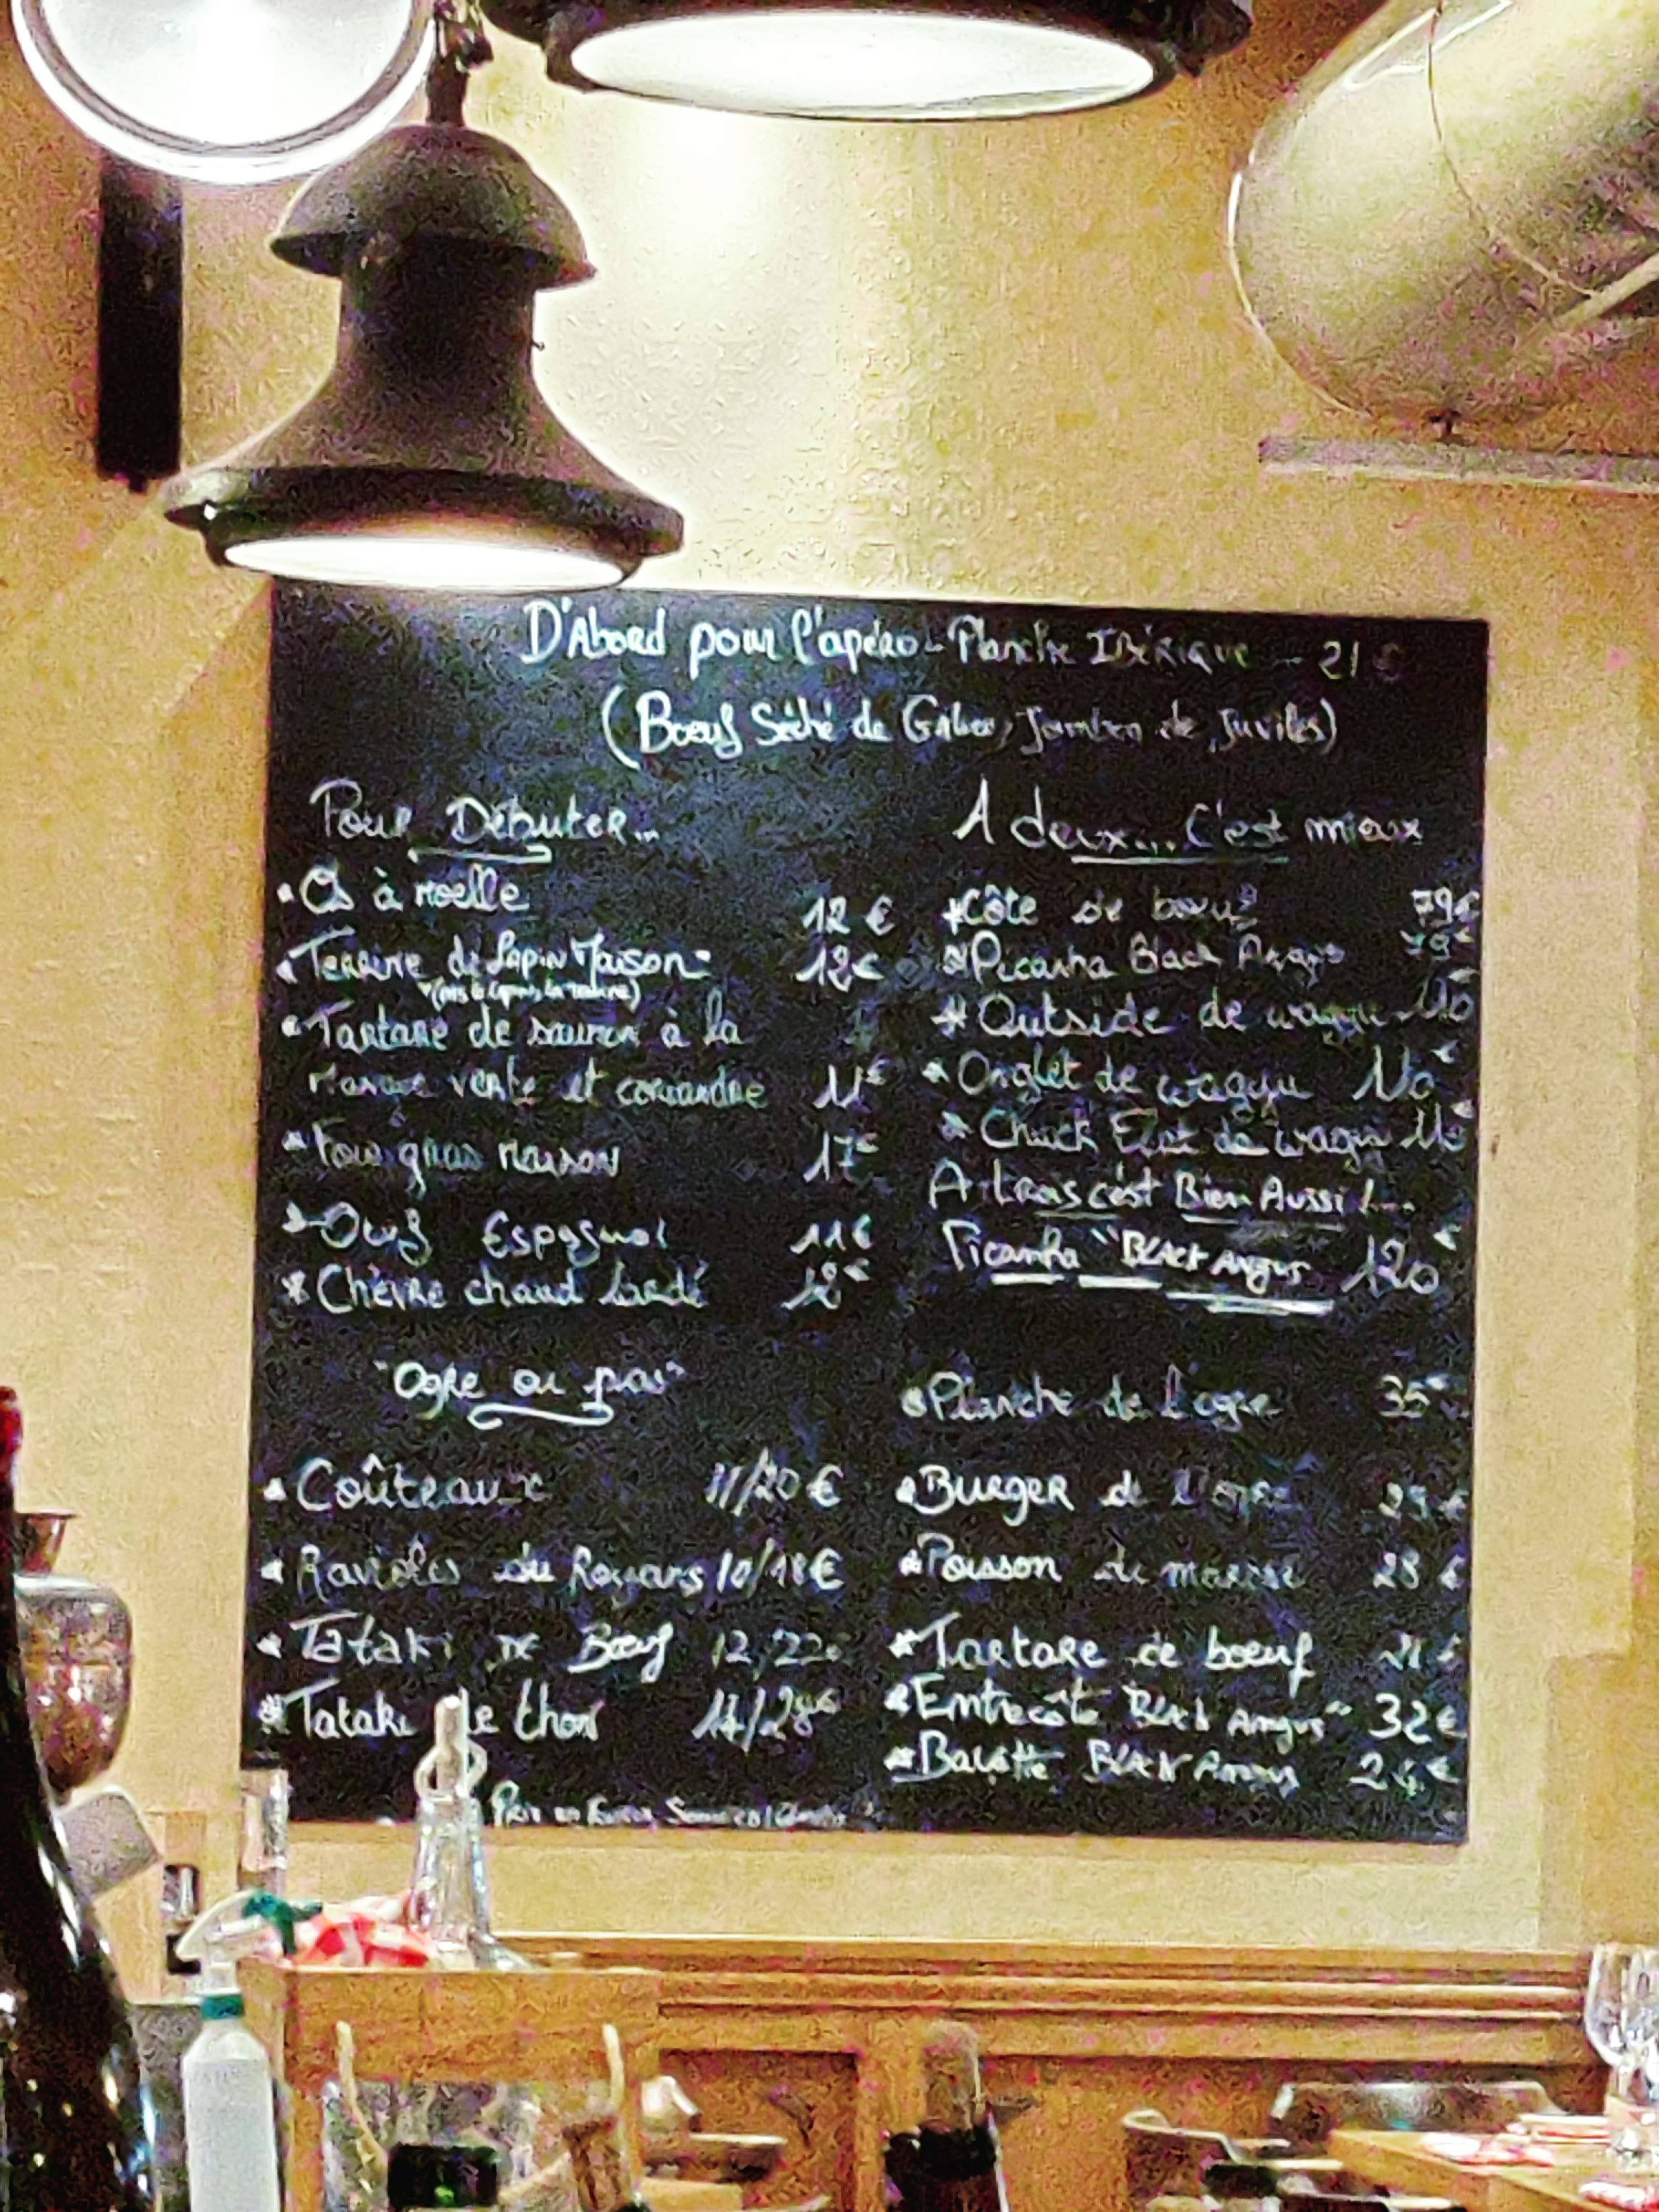 D'Abord pour l'apéro - Planche Ibérique - 21 €
(Boeuf Séché de Jambon de Juviles)
Pour Débuter...
• Os à moelle 12 €
• Terrine de Lapin Maison 12€
• Tartare de saumon à la
mangue verte et coriandre 11€
• Foie gras maison 17€
• Oeuf Espagnol 11€
* Chèvre chaud lardé 12€
"Ogre ou pas"
• Coûteaux 11/20 €
• Ravioles du Royans 10/18€
• Tataki de Boeuf 12/22€
• Tataki de thon 14/28€
A deux... C'est mieux
* Côte de boeuf 79€
* Picanha Black Angus 79€
* Outside de wagyu 110€
* Onglet de wagyu 110€
* Chuck Flat de wagyu 110€
A trois c'est Bien Aussi !...
Picanha "Black Angus 120€
• Planche de l'ogre 35€
• Burger de l'ogre €
• Poisson du marché 28 €
* Tartare de boeuf 21 €
• Entrecôte "Black Angus" 32€
• Bavette Black Angus 24€
Prix en